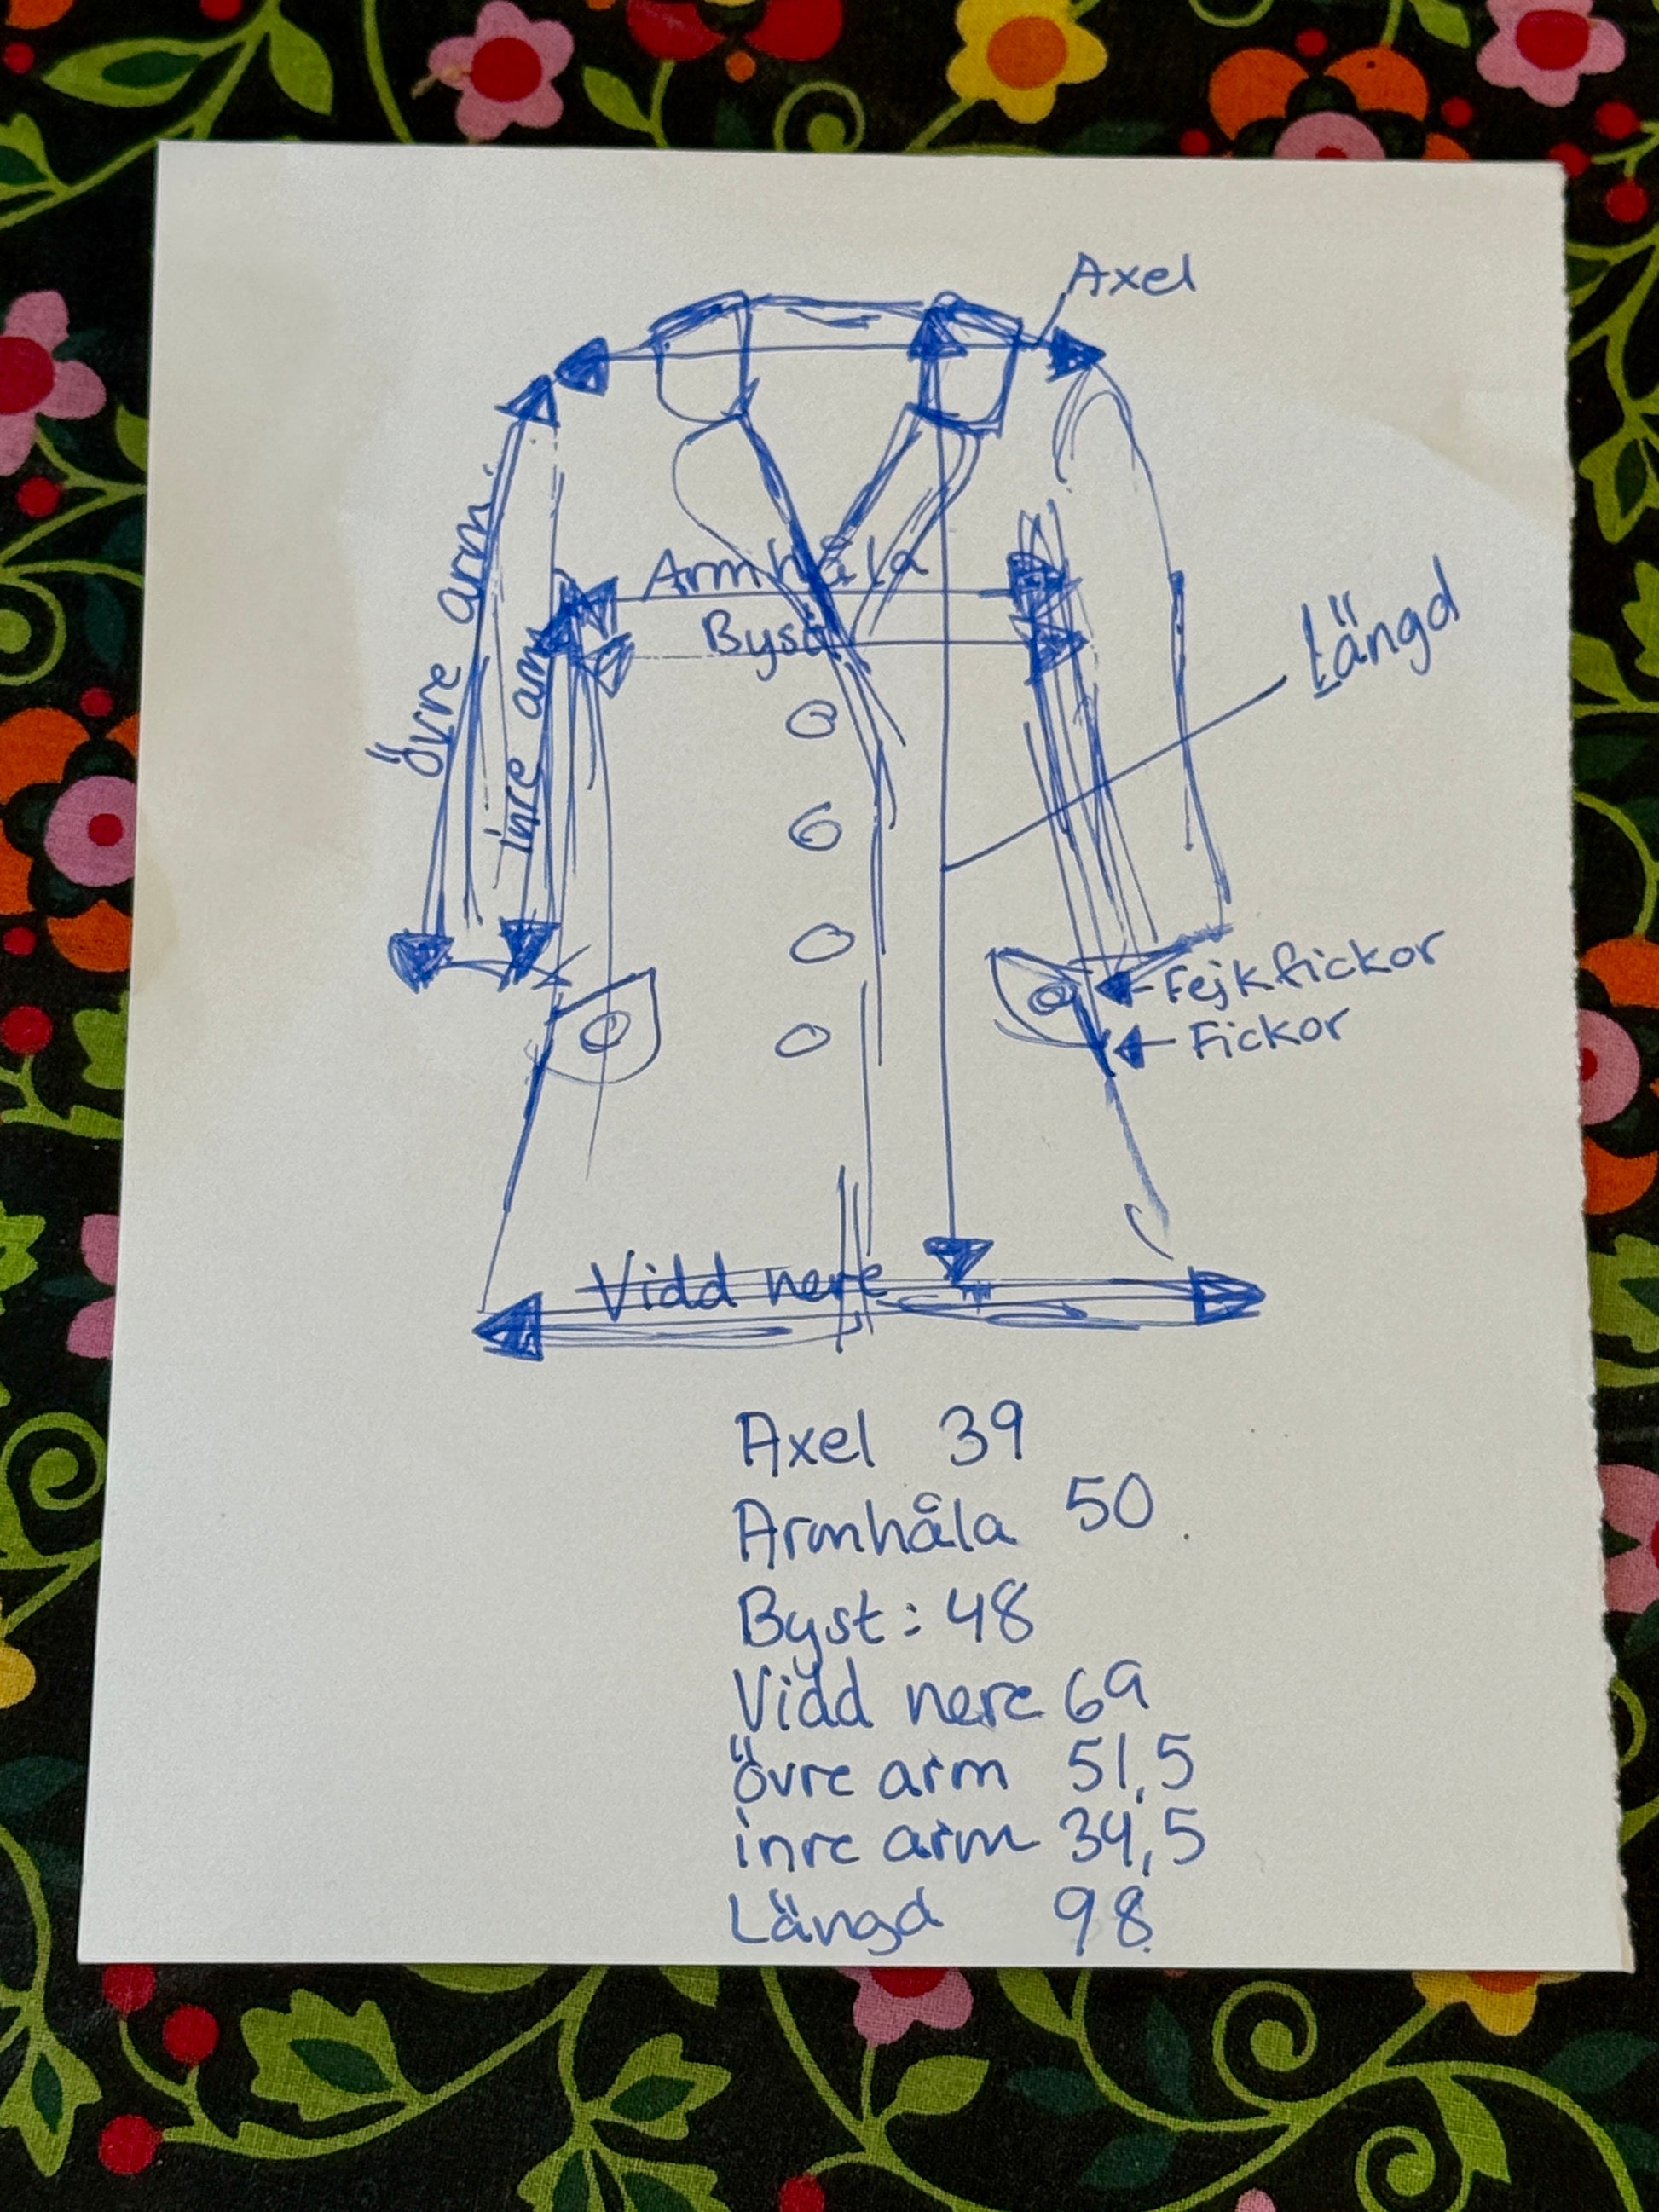 Axel
Armhåla
Byst
övre arm
inre arm
Längd
Fejkfickor
Fickor
Vidd nere
Axel 39
Armhåla 50
Byst: 48
Vidd nere 69
övre arm 51,5
inre arm 34,5
Längd 98